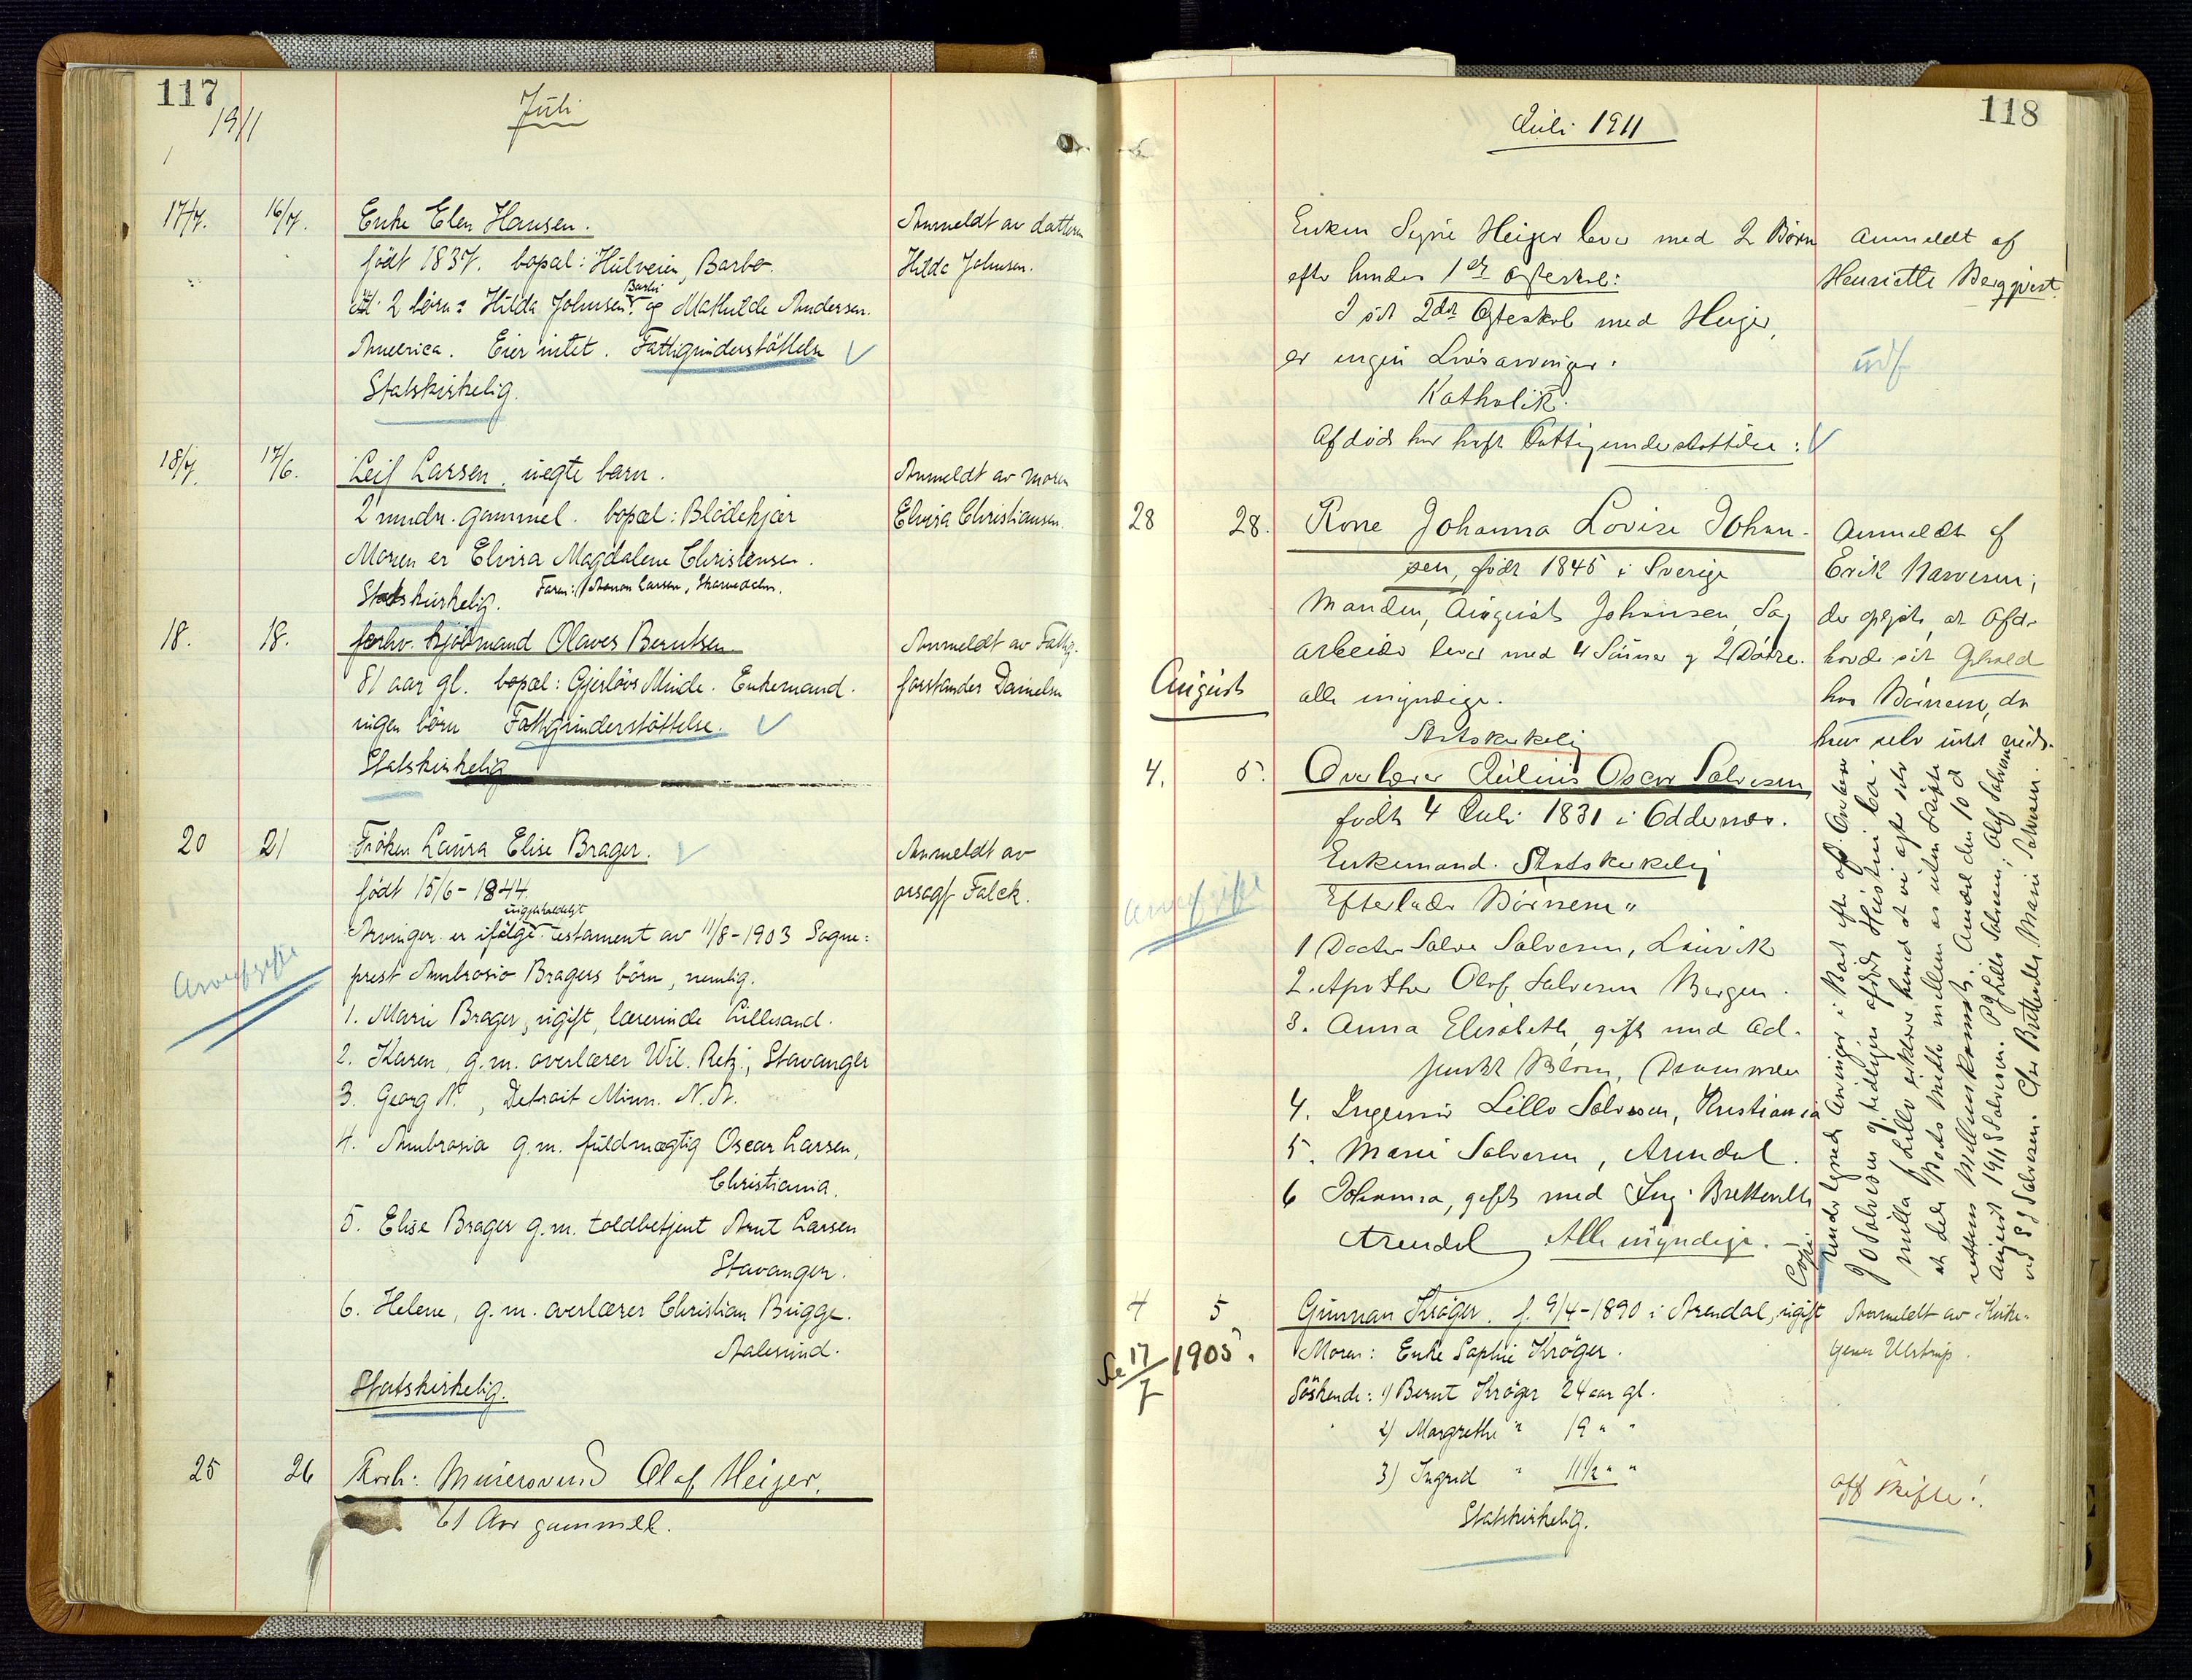 117
1911
Juli
17/7. 16/7. Enke Elen Hansen. Anmeldt av datteren
født 1837. bopæl: Hulveien, Barbo. Hilda Johnsen.
Barbo
2 børn: Hilda Johnsen og Mathilde Andersen.
America. Eier intet. Fattigunderstøttelse
Statskirkelig.
18/7. 17/6. Leif Larsen, uegte barn. Anmeldt av moren
2 mndr. gammel. bopæl: Blødekjær Elvira Christiansen.
Moren er Elvira Magdalene Christensen.
Statskirkelig. Faren: Larsen,
18. 18. forhv. Olaves Berntsen Anmeldt av Fattig-
81 aar gl. bopæl: Gjerløvs Minde. Enkemand. forstander Danielsen
ingen børn Fattigunderstøttelse.
Statskirkelig
20 21 Frøken Laura Elise Brager. Anmeldt av
født 15/6 - 1844. orsagf Falck.
Arvinger er ifølge testament av 11/8 - 1903 Sogne-
prest Ambrosio Bragers børn, nemlig.
Arveafgift
1. Marie Brager, ugift, lærerinde Lillesand.
2. Karen, g.m. overlærer Wil. Retz, Stavanger
3. Georg N., Detroit Minn. N.A.
4. Ambrosia g.m. fuldmægtig Oscar Larsen,
Christiania.
5. Elise Brager g.m. toldbetjent Arnt Larsen
Stavanger.
6. Helene, g.m. overlærer Christian Bugge.
Aalesund.
Statskirkelig.
25 26 Forh: Murersvend Olaf Heijer.
61 Aar gammel.
118
Juli 1911
Enken Signe Heijer lever med 2 Børn Anmeldt af
efter hendes 1ste Ægteskab: Henriette Bergqvist.
I sit 2det Ægteskab med Heijer,
er ingen Livsarvinger. udf
Katholik.
Afdøde har havt Fattigunderstøttelse:
28 28. Kone Johanna Lovise Johan- Anmeldt af
sen, født 1845 i Sverige Erik
Manden, August Johansen, Sag- der oplyste, at Afd.
arbeider lever med 4 Sønner og 2 Døtre. havde sit Ophold
August alle myndige. hos Børnene, da
Statskirkelig hun selv intet eied.
4. 5. Overlærer Julius Oscar Salvesen
født 4 Juli 1831 i Oddernes.
Enkemand. Statskirkelig
Efterlader Børnene:
Arveafgift
1 Doctor Salve Salvesen, Laurvik
2. Apotheker Olaf Salvesen Bergen.
3. Anna Elisabeth, gift med Ad-
junkt Blom, Drammen
4. Ingeniør Lillo Salvesen, Kristiania
5. Marie Salvesen, Arendal.
6 Johanna, gift med Ing. Bretteville
Arendal Alle myndige.
Copi
Undertegnede Arvinger i Boet efter afd. Overlærer
J O Salvesen og tidligere afdøde Hustru
Lillo erklærer herved at vi agter selv
at dele Boets Midler mellem os uden Skifte-
rettens Mellemkomst. Arendal den 10de
August 1911 S Salvesen. Lillo Salvesen; Olaf Salvesen
ved S J Salvesen. Bretteville Marie Salvesen.
4 5 Gunnar Krøger. f. 9/4 - 1890 i Arendal, ugift Anmeldt av Kirke-
Se 17/7 1905. Moren: Enke Sophie Krøger. tjener Ulstrup.
Søskende: 1) Bernt Krøger 24 aar gl.
2) Margrethe " 19 " "
3) Ingrid " 11 1/2 " "
off Skifte!
Statskirkelig.